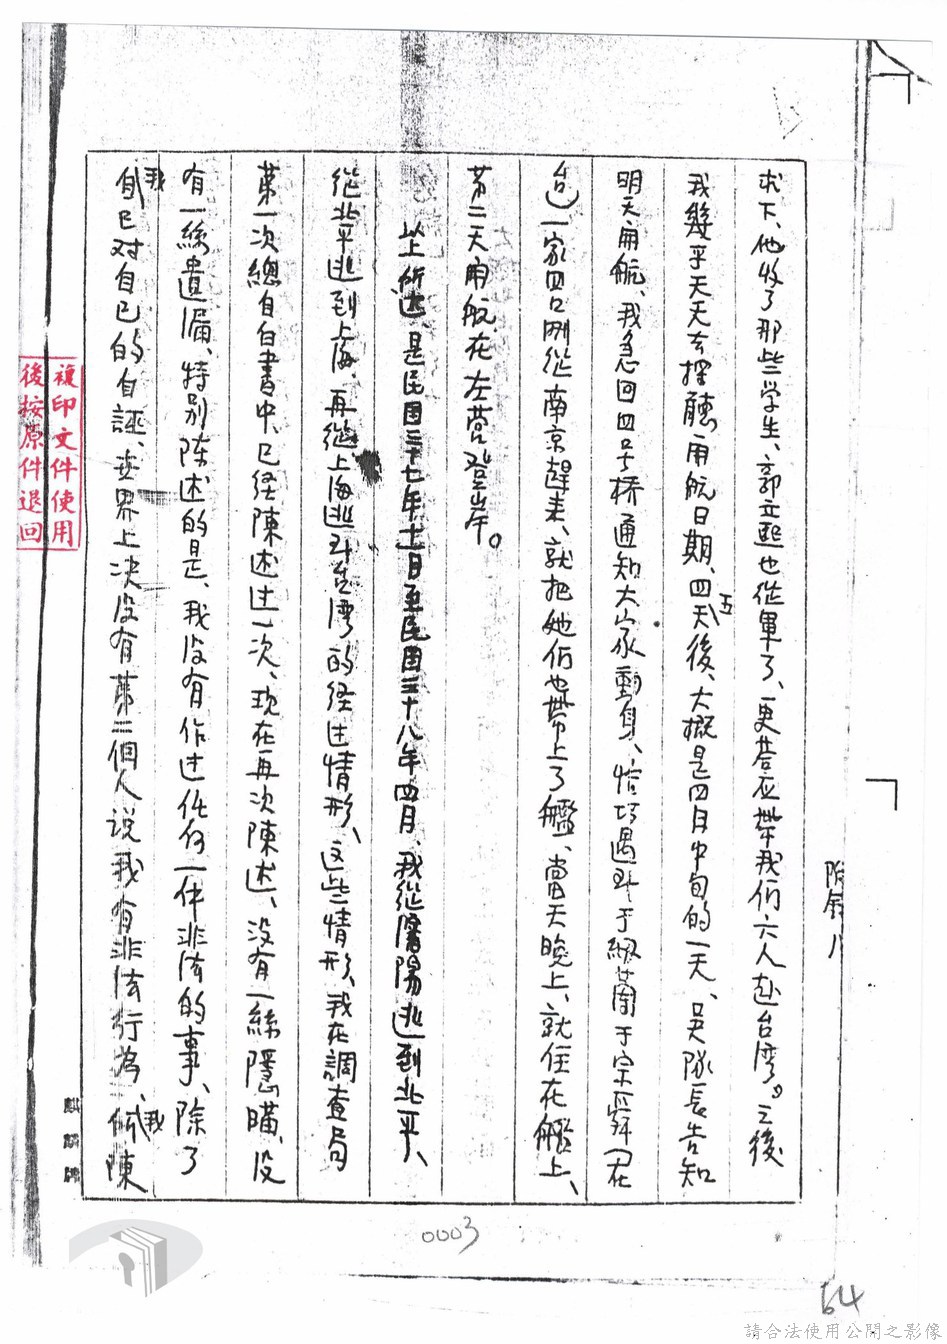 求下、他收了那些学生、郭立熙也從軍了、更答应带我们六人赴台湾。之後
我幾乎天天去探聽开航日期、四五天後、大概是四月中旬的一天、吳隊長告知
明天开航、我急回四号桥通知大家動身、恰巧遇到于珮蘭于宗舜(君在
台)一家四口剛從南京趕来、就把她们也带上了艦、當天晚上、就住在艦上、
第二天开航、在左营登岸。
以上所述、是民国三十七年十一月至民国三十八年四月、我從瀋陽逃到北平、
從北平逃到上海、再從上海逃到台湾的经过情形、这些情形、我在調查局
第一次總自白書中、已经陳述过一次、现在再次陳述、没有一絲隱瞞、没
有一絲遺漏、特别陈述的是、我没有作过任何一件非法的事、除了
我自己对自己的自誣、世界上决没有第二個人说我有非法行為、我陳
附錄八
複印文件使用
後按原件退回
麒麟牌
0003
64
請合法使用公開之影像